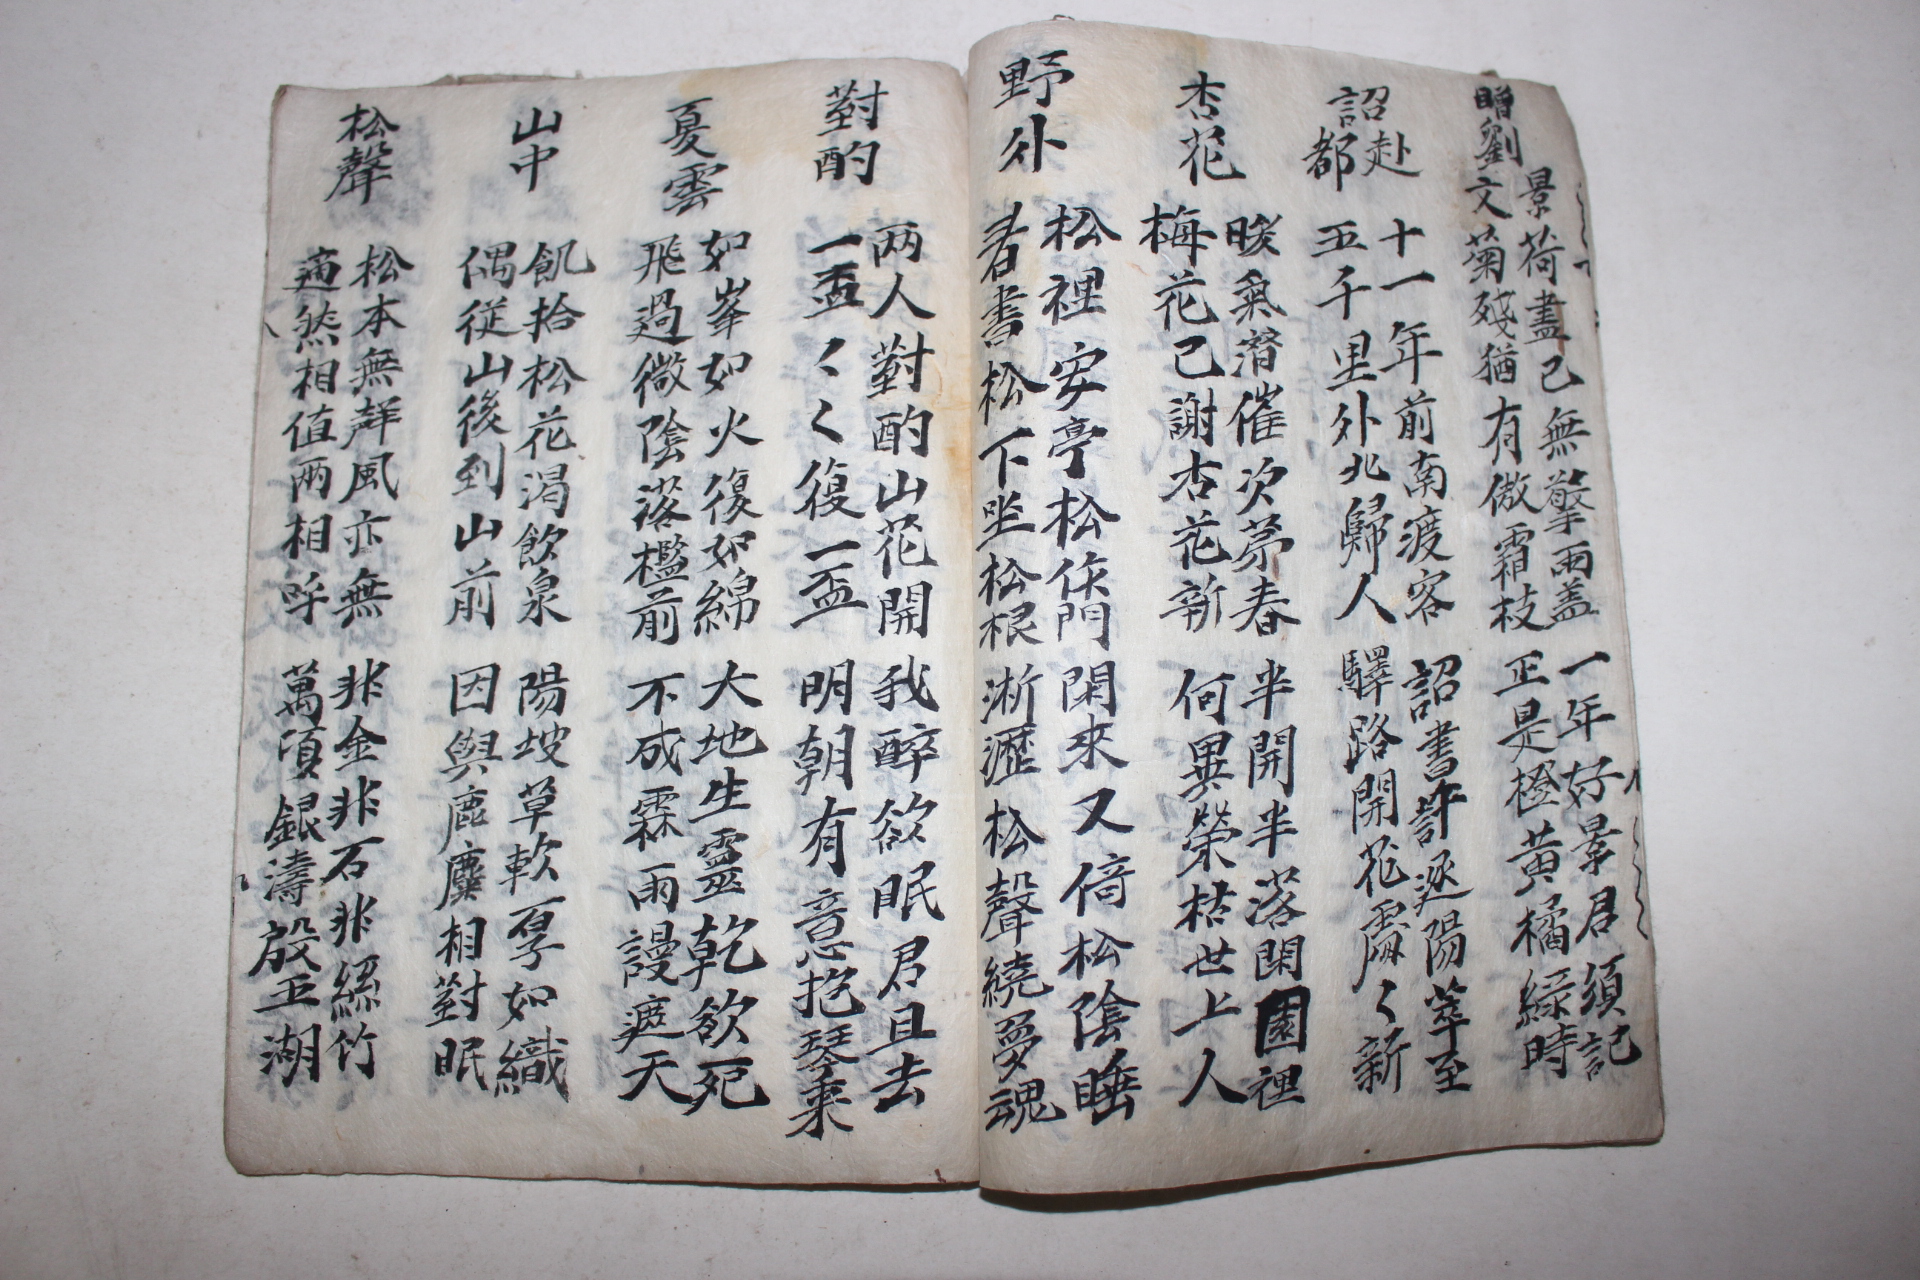 贈劉景文
荷盡已無擎雨盖 一年好景君須記
菊殘猶有傲霜枝 正是橙黃橘綠時
詔赴都
十一年前南渡客 詔書許逐陽萃至
五千里外北歸人 驛路開花處〻新
杏花
暖氣潛催次苐春 半開半落閑園裡
梅花已謝杏花新 何異榮枯世上人
野外
松裡安亭松作門 閑來又倚松陰睡
看書松下坐松根 淅瀝松聲繞夢魂
對酌
两人對酌山花開 我醉欲眠君且去
一盃〻〻復一盃 明朝有意抱琴來
夏雲
如峯如火復如綿 大地生靈乾欲死
飛過微陰落檻前 不成霖雨謾遮天
山中
飢拾松花渴飲泉 陽坡草軟厚如織
偶從山後到山前 因與鹿麋相對眠
松聲
松本無聲風亦無 非金非石非絲竹
適然相值兩相呼 萬頃銀濤殷五湖